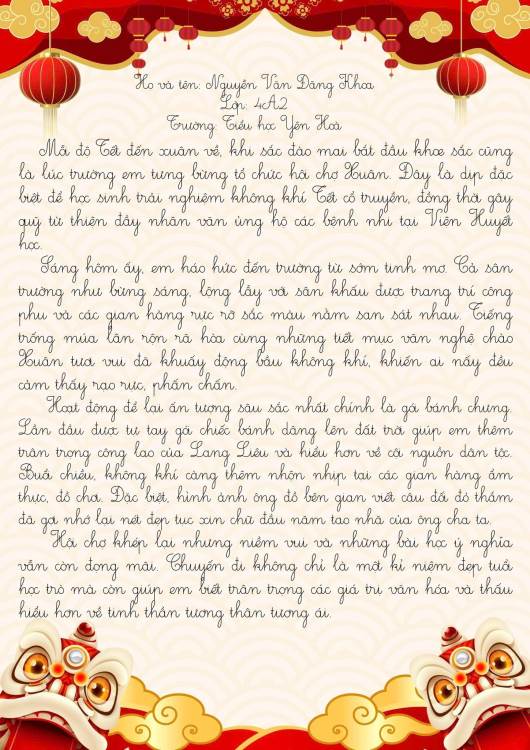 Họ và tên: Nguyễn Văn Đăng Khoa
Lớp: 4A2
Trường: Tiểu học Yên Hoà
Mỗi độ Tết đến xuân về, khi sắc đào mai bắt đầu khoe sắc cũng
là lúc trường em tưng bừng tổ chức hội chợ Xuân. Đây là dịp đặc
biệt để học sinh trải nghiệm không khí Tết cổ truyền, đồng thời gây
quỹ từ thiện đầy nhân văn ủng hộ các bệnh nhi tại Viện Huyết
học.
Sáng hôm ấy, em háo hức đến trường từ sớm tinh mơ. Cả sân
trường như bừng sáng, lộng lẫy với sân khấu được trang trí công
phu và các gian hàng rực rỡ sắc màu nằm san sát nhau. Tiếng
trống múa lân rộn rã hòa cùng những tiết mục văn nghệ chào
Xuân tươi vui đã khuấy động bầu không khí, khiến ai nấy đều
cảm thấy rạo rực, phấn chấn.
Hoạt động để lại ấn tượng sâu sắc nhất chính là gói bánh chưng.
Lần đầu được tự tay gói chiếc bánh dâng lên đất trời giúp em thêm
trân trọng công lao của Lang Liêu và hiểu hơn về cội nguồn dân tộc.
Buổi chiều, không khí càng thêm nhộn nhịp tại các gian hàng ẩm
thực, đồ chơi. Đặc biệt, hình ảnh ông đồ bên gian viết câu đối đỏ thắm
đã gợi nhớ lại nét đẹp tục xin chữ đầu năm tao nhã của ông cha ta.
Hội chợ khép lại nhưng niềm vui và những bài học ý nghĩa
vẫn còn đọng mãi. Chuyến đi không chỉ là một kỉ niệm đẹp tuổi
học trò mà còn giúp em biết trân trọng các giá trị văn hóa và thấu
hiểu hơn về tinh thần tương thân tương ái.